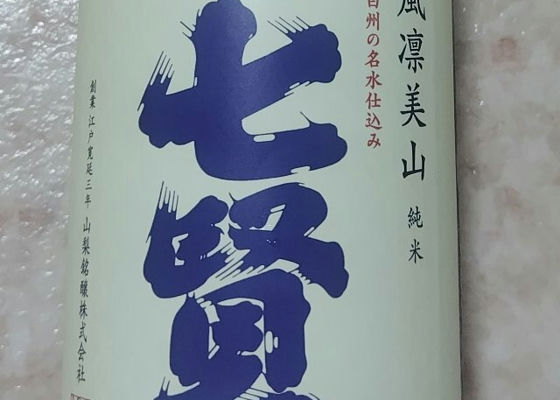 風凛美山 純米
白州の名水仕込み
七賢
創業 江戸寛延三年 山梨銘醸株式会社